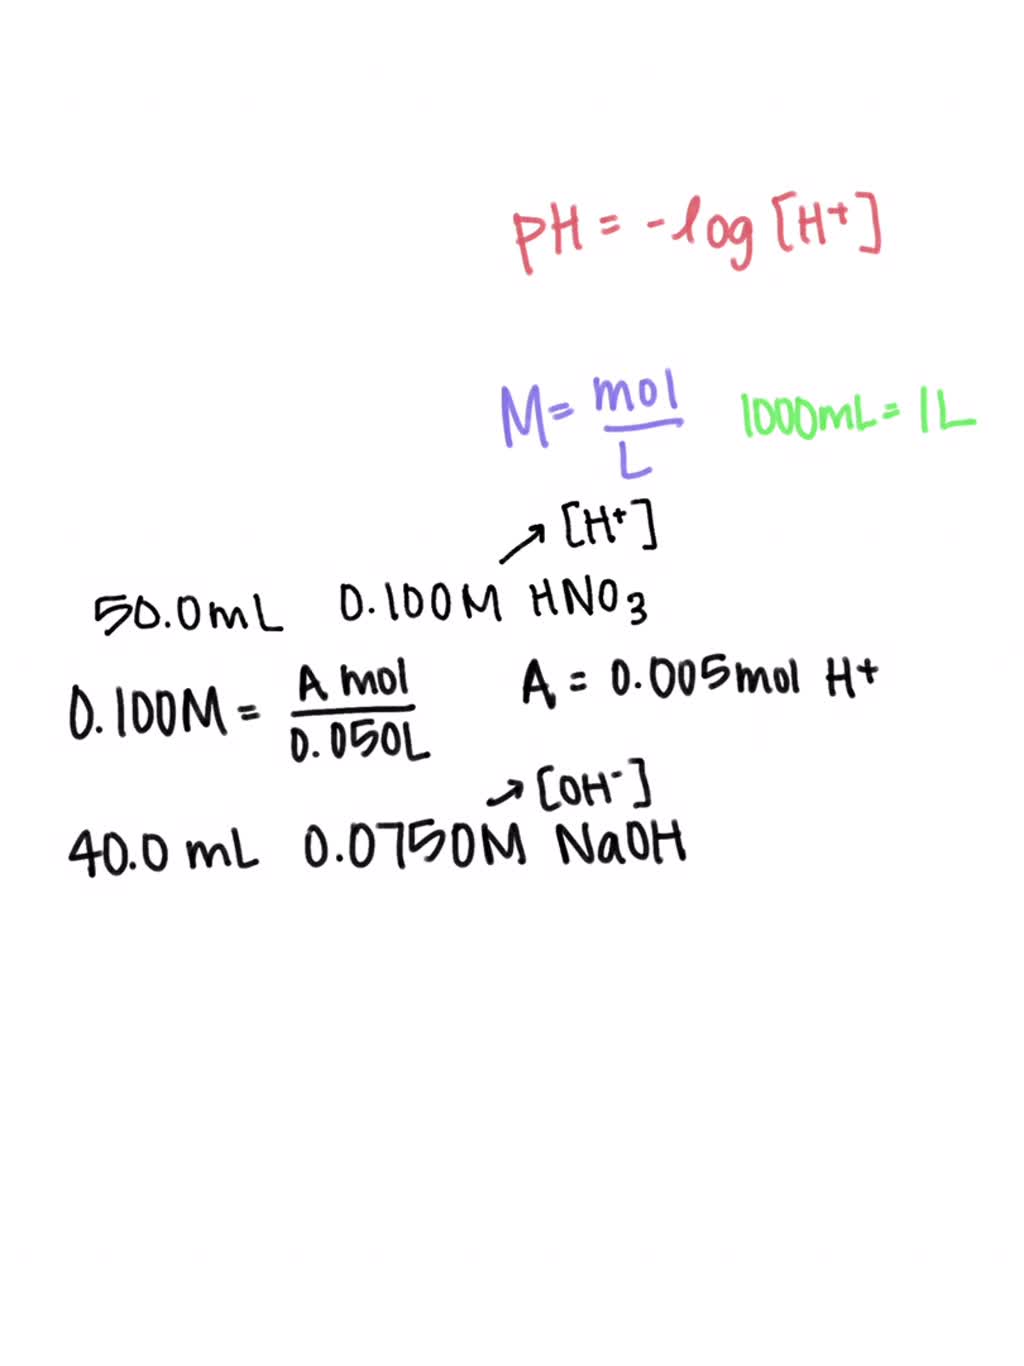 pH = -log [H+]
M = mol/L 1000mL = 1L
→ [H+]
50.0mL 0.100M HNO3
0.100M = A mol/0.050L A = 0.005mol H+
→ [OH-]
40.0 mL 0.0750M NaOH